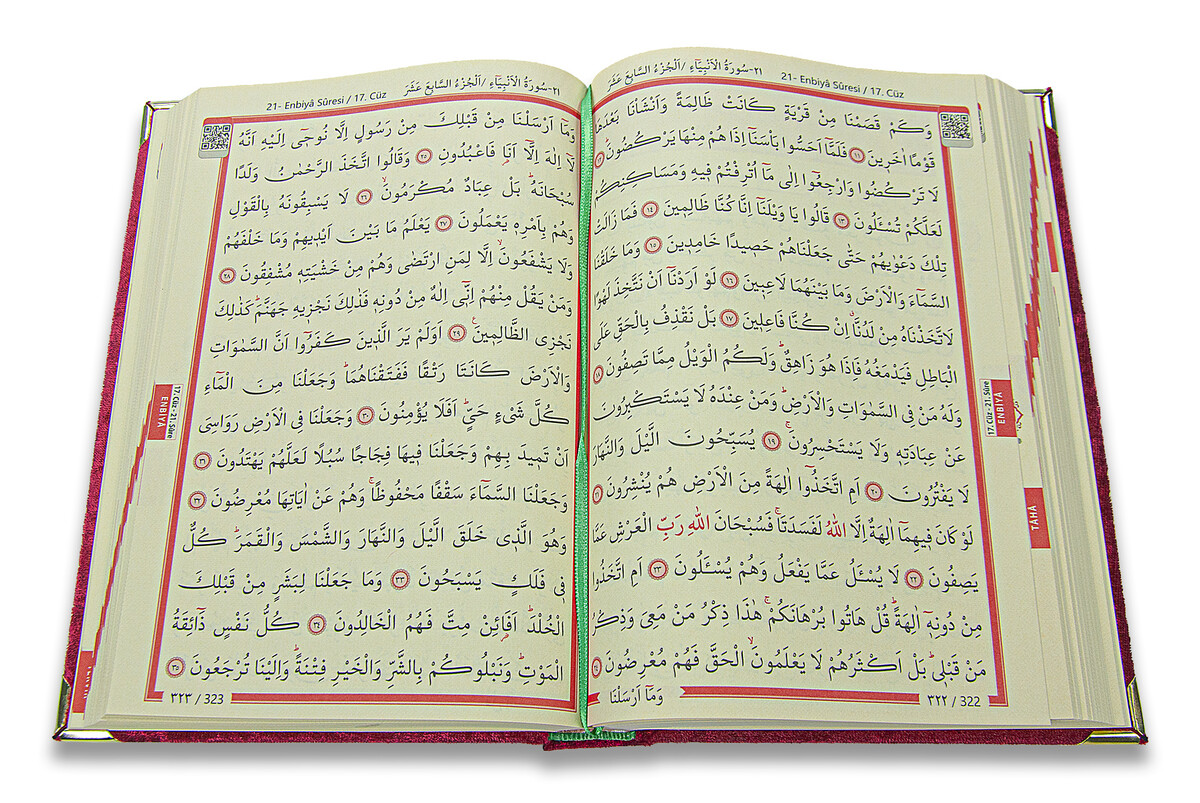 ٢١-سُورَةُ الْاَنْبِيَٓاءِ /اَلْجُزْءُ السَّابِعَ عَشَرَ
21- Enbiyâ Sûresi / 17. Cüz
وَكَمْ قَصَمْنَا مِنْ قَرْيَةٍ كَانَتْ ظَالِمَةً وَاَنْشَأْنَا بَعْدَهَا
قَوْمًا اٰخَر۪ينَ ﴿١١﴾ فَلَمَّٓا اَحَسُّوا بَأْسَنَٓا اِذَا هُمْ مِنْهَا يَرْكُضُونَۜ ﴿١٢﴾
لَا تَرْكُضُوا وَارْجِعُٓوا اِلٰى مَٓا اُتْرِفْتُمْ ف۪يهِ وَمَسَاكِنِكُمْ
لَعَلَّكُمْ تُسْـَٔلُونَ ﴿١٣﴾ قَالُوا يَا وَيْلَنَٓا اِنَّا كُنَّا ظَالِم۪ينَ ﴿١٤﴾ فَمَا زَالَتْ
تِلْكَ دَعْوٰيهُمْ حَتّٰى جَعَلْنَاهُمْ حَص۪يدًا خَامِد۪ينَ ﴿١٥﴾ وَمَا خَلَقْنَا
السَّمَٓاءَ وَالْاَرْضَ وَمَا بَيْنَهُمَا لَاعِب۪ينَ ﴿١٦﴾ لَوْ اَرَدْنَٓا اَنْ نَتَّخِذَ لَهْوًا
لَاتَّخَذْنَاهُ مِنْ لَدُنَّاۗ اِنْ كُنَّا فَاعِل۪ينَ ﴿١٧﴾ بَلْ نَقْذِفُ بِالْحَقِّ عَلَى
الْبَاطِلِ فَيَدْمَغُهُ فَاِذَا هُوَ زَاهِقٌۜ وَلَكُمُ الْوَيْلُ مِمَّا تَصِفُونَ ﴿١٨﴾
وَلَهُ مَنْ فِى السَّمٰوَاتِ وَالْاَرْضِۜ وَمَنْ عِنْدَهُ لَا يَسْتَكْبِرُونَ
عَنْ عِبَادَتِه۪ وَلَا يَسْتَحْسِرُونَۚ ﴿١٩﴾ يُسَبِّحُونَ الَّيْلَ وَالنَّهَارَ
لَا يَفْتُرُونَ ﴿٢٠﴾ اَمِ اتَّخَذُٓوا اٰلِهَةً مِنَ الْاَرْضِ هُمْ يُنْشِرُونَ ﴿٢١﴾
لَوْ كَانَ ف۪يهِمَٓا اٰلِهَةٌ اِلَّا اللّٰهُ لَفَسَدَتَاۚ فَسُبْحَانَ اللّٰهِ رَبِّ الْعَرْشِ عَمَّا
يَصِفُونَ ﴿٢٢﴾ لَا يُسْـَٔلُ عَمَّا يَفْعَلُ وَهُمْ يُسْـَٔلُونَ ﴿٢٣﴾ اَمِ اتَّخَذُوا
مِنْ دُونِه۪ٓ اٰلِهَةًۜ قُلْ هَاتُوا بُرْهَانَكُمْۚ هٰذَا ذِكْرُ مَنْ مَعِىَ وَذِكْرُ
مَنْ قَبْل۪ىۜ بَلْ اَكْثَرُهُمْ لَا يَعْلَمُونَۙ الْحَقَّ فَهُمْ مُعْرِضُونَ ﴿٢٤﴾
وَمَٓا اَرْسَلْنَا
٣٢٢ / 322
17. Cüz - 21. Sûre
ENBİYÂ
TÂHÂ
٢١-سُورَةُ الْاَنْبِيَٓاءِ /اَلْجُزْءُ السَّابِعَ عَشَرَ
21- Enbiyâ Sûresi / 17. Cüz
وَمَٓا اَرْسَلْنَا مِنْ قَبْلِكَ مِنْ رَسُولٍ اِلَّا نُوح۪ٓى اِلَيْهِ اَنَّهُ
لَٓا اِلٰهَ اِلَّٓا اَنَا۬ فَاعْبُدُونِ ﴿٢٥﴾ وَقَالُوا اتَّخَذَ الرَّحْمٰنُ وَلَدًا
سُبْحَانَهُۜ بَلْ عِبَادٌ مُكْرَمُونَۙ ﴿٢٦﴾ لَا يَسْبِقُونَهُ بِالْقَوْلِ
وَهُمْ بِاَمْرِه۪ يَعْمَلُونَ ﴿٢٧﴾ يَعْلَمُ مَا بَيْنَ اَيْد۪يهِمْ وَمَا خَلْفَهُمْ
وَلَا يَشْفَعُونَۙ اِلَّا لِمَنِ ارْتَضٰى وَهُمْ مِنْ خَشْيَتِه۪ مُشْفِقُونَ ﴿٢٨﴾
وَمَنْ يَقُلْ مِنْهُمْ اِنّ۪ٓى اِلٰهٌ مِنْ دُونِه۪ فَذٰلِكَ نَجْز۪يهِ جَهَنَّمَۜ كَذٰلِكَ
نَجْزِى الظَّالِم۪ينَ۟ ﴿٢٩﴾ اَوَلَمْ يَرَ الَّذ۪ينَ كَفَرُٓوا اَنَّ السَّمٰوَاتِ
وَالْاَرْضَ كَانَتَا رَتْقًا فَفَتَقْنَاهُمَاۜ وَجَعَلْنَا مِنَ الْمَٓاءِ
كُلَّ شَىْءٍ حَىٍّۜ اَفَلَا يُؤْمِنُونَ ﴿٣٠﴾ وَجَعَلْنَا فِى الْاَرْضِ رَوَاسِىَ
اَنْ تَم۪يدَ بِهِمْ وَجَعَلْنَا ف۪يهَا فِجَاجًا سُبُلًا لَعَلَّهُمْ يَهْتَدُونَ ﴿٣١﴾
وَجَعَلْنَا السَّمَٓاءَ سَقْفًا مَحْفُوظًاۚ وَهُمْ عَنْ اٰيَاتِهَا مُعْرِضُونَ ﴿٣٢﴾
وَهُوَ الَّذ۪ى خَلَقَ الَّيْلَ وَالنَّهَارَ وَالشَّمْسَ وَالْقَمَرَۜ كُلٌّ
ف۪ى فَلَكٍ يَسْبَحُونَ ﴿٣٣﴾ وَمَا جَعَلْنَا لِبَشَرٍ مِنْ قَبْلِكَ
الْخُلْدَۜ اَفَا۬ئِنْ مِتَّ فَهُمُ الْخَالِدُونَ ﴿٣٤﴾ كُلُّ نَفْسٍ ذَٓائِقَةُ
الْمَوْتِۜ وَنَبْلُوكُمْ بِالشَّرِّ وَالْخَيْرِ فِتْنَةًۜ وَاِلَيْنَا تُرْجَعُونَ ﴿٣٥﴾
٣٢٣ / 323
17. Cüz - 21. Sûre
ENBİYÂ